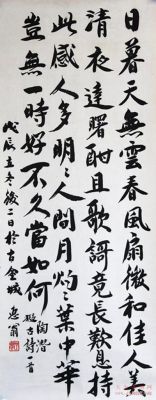 日暮天無雲春風扇微和佳人美
清夜達曙酣且歌謌竟長歎息持
此感人多明〻人間月灼〻葉中華
豈無一時好不久當如何 陶潛
擬古詩一首
戊辰立冬後二日於古金城